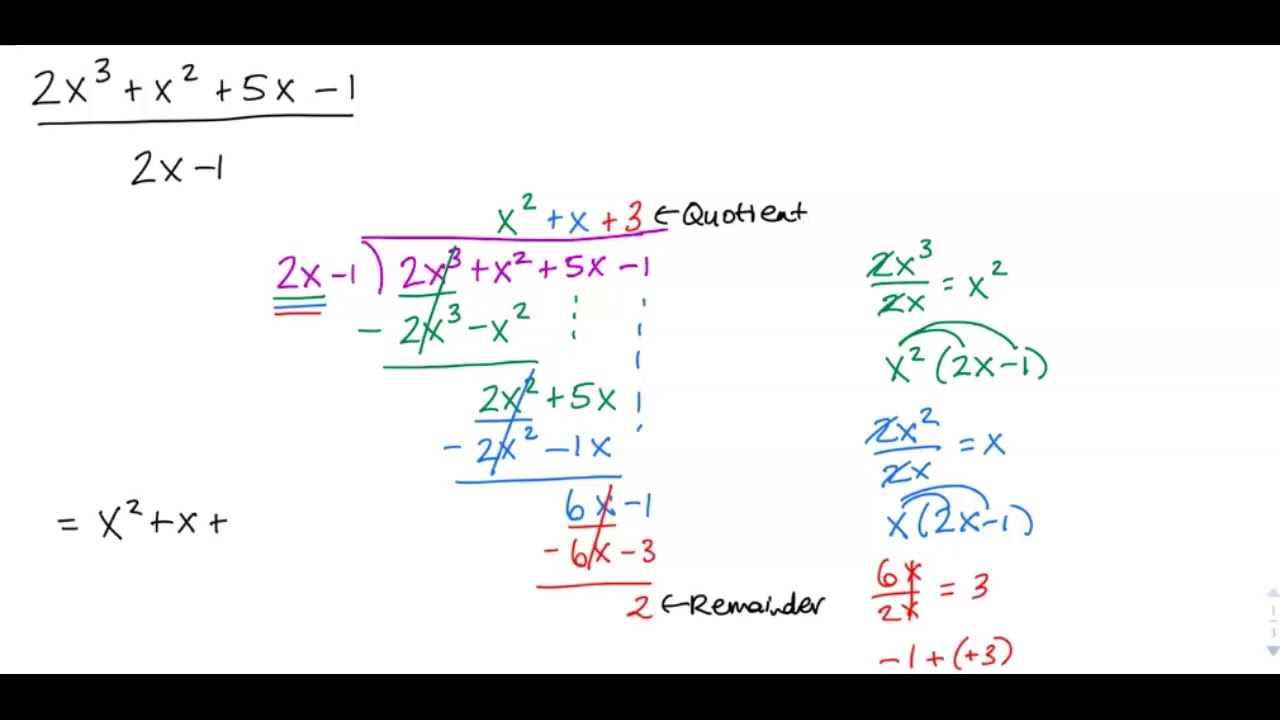 2x³ + x² + 5x − 1
2x − 1
x² + x + 3 ← Quotient
2x − 1 ) 2x³ + x² + 5x − 1
− 2x³ − x²
2x² + 5x
− 2x² − 1x
6x − 1
− 6x − 3
2 ← Remainder
= x² + x +
2x³
2x = x²
x² (2x − 1)
2x²
2x = x
x (2x − 1)
6x
2x = 3
−1 + (+3)
1
3